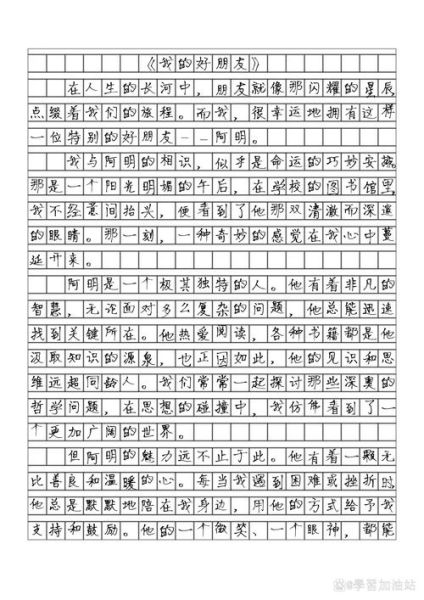 《我的好朋友》
在人生的长河中，朋友就像那闪耀的星辰，
点缀着我们的旅程。而我，很幸运地拥有这样
一位特别的好朋友——阿明。
我与阿明的相识，似乎是命运的巧妙安排。
那是一个阳光明媚的午后，在学校的图书馆里，
我不经意间抬头，便看到了他那双清澈而深邃
的眼睛。那一刻，一种奇妙的感觉在我心中蔓
延开来。
阿明是一个极其独特的人。他有着非凡的
智慧，无论面对多么复杂的问题，他总能迅速
找到关键所在。他热爱阅读，各种书籍都是他
汲取知识的源泉，也正因如此，他的见识和思
维远超同龄人。我们常常一起探讨那些深奥的
哲学问题，在思想的碰撞中，我仿佛看到了一
个更加广阔的世界。
但阿明的魅力远不止于此。他有着一颗无
比善良和温暖的心。每当我遇到困难或挫折时，
他总是默默地陪在我身边，用他的方式给予我
支持和鼓励。他的一个微笑、一个眼神，都能
@學習加油站